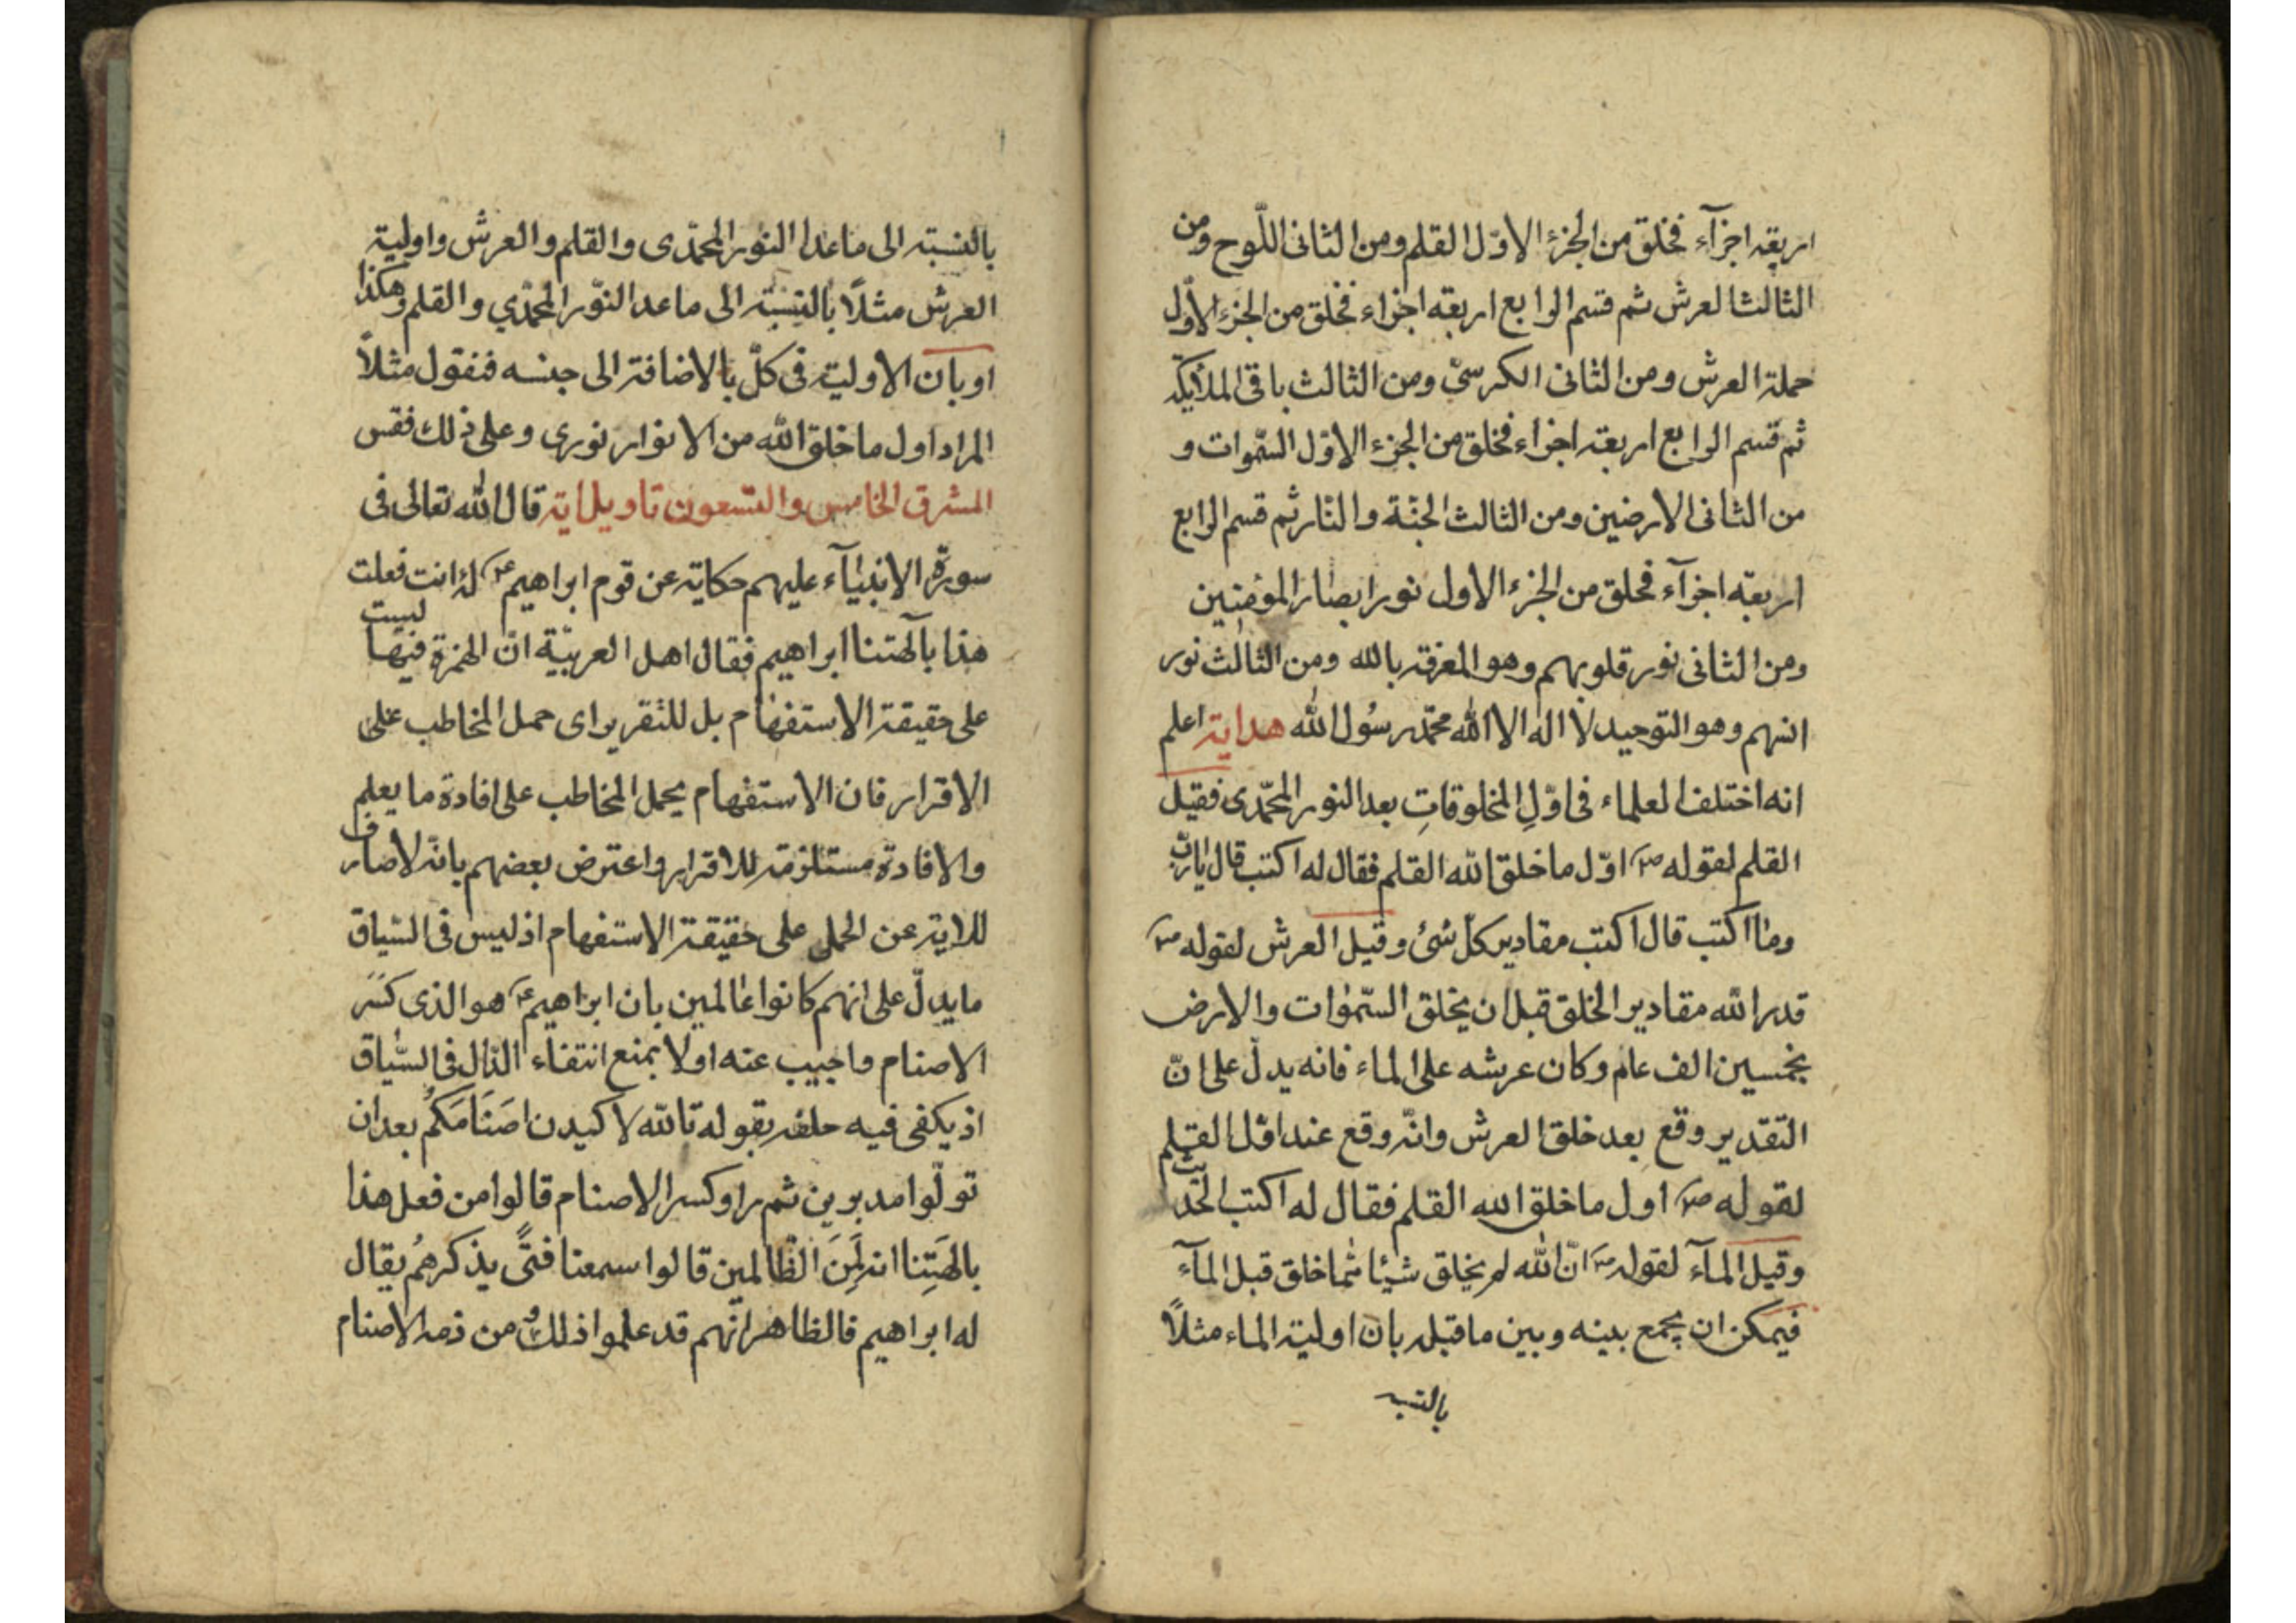 اربعة اجزآء فخلق من الجزء الاوّل القلم ومن الثانى اللّوح ومن
الثالث العرش ثم قسم الرابع اربعة اجزاء فخلق من الجزء الاوّل
حملة العرش ومن الثانى الكرسىّ ومن الثالث باقى الملائكة
ثم قسم الرابع اربعة اجزاء فخلق من الجزء الاوّل السّموات و
من الثانى الارضين ومن الثالث الجنّة والنّار ثم قسم الرابع
اربعة اجزآء فخلق من الجزء الاول نور ابصار المؤمنين
ومن الثانى نور قلوبهم وهو المعرفة بالله ومن الثالث نور
انسهم وهو التوحيد لا اله الا الله محمّد رسُول الله هداية اعلم
انه اختلف العلماء فى اوّلِ المخلوقاتِ بعد النور المحمّدى فقيل
القلم لقوله صم اوّل ما خلق الله القلم فقال له اكتب قال يا ربّ
وما اكتب قال اكتب مقادير كلّ شئ وقيل العرش لقوله صم
قدر الله مقادير الخلق قبل ان يخلق السّموات والارض
بخمسين الف عام وكان عرشه على الماء فانه يدلّ على انّ
التقدير وقع بعد خلق العرش وانّه وقع عند اوّل القلم
لقوله صم اول ما خلق الله القلم فقال له اكتب الحديث
وقيل المآء لقوله صم انّ الله لم يخلق شيئا مّما خلق قبل المآء
فيمكن ان يجمع بينه وبين ما قبله بان اولية الماء مثلاً
بالنسبه
بالنسبة الى ما عدا النور المحمّدى والقلم والعرش واولية
العرش مثلاً بالنسبة الى ما عدا النّور المحمّدي والقلم وهكذا
او بان الاولية فى كلّ بالاضافة الى جنسه فنقول مثلاً
المراد اول ما خلق الله من الانوار نورى وعلى ذلك فقس
المشرق الخامس والتسعون تاويل اية قال الله تعالى فى
سورة الانبيآء عليهم حكاية عن قوم ابراهيم عم ءانت فعلت
هذا بآلهتنا ابراهيم فقال اهل العربيّة انّ الهمزة فيها ليست
على حقيقة الاستفهام بل للتقرير اى حمل المخاطب على
الاقرار فان الاستفهام يحمل المخاطب على افادة ما يعلم
والافادة مستلزمة للاقرار واعترض بعضهم بانّه لا صارف
للاية عن الحمل على حقيقة الاستفهام اذ ليس فى السّياق
ما يدلّ على انهم كانوا عالمين بان ابراهيم عم هو الذى كسَر
الاصنام واجيب عنه اولا بمنع انتفاء الدّال فى السّياق
اذ يكفى فيه حلفه بقوله تالله لاكيدن اصنَامَكُم بعد ان
تولّوا مدبرين ثم راو كسر الاصنام قالوا من فعل هذا
بالهَتِنا انه لَمِنَ الظّالمين قالوا سمعنا فتًى يذكرهُم يقال
له ابراهيم فالظاهر انّهم قد علموا ذلك من ذمه الاصنام